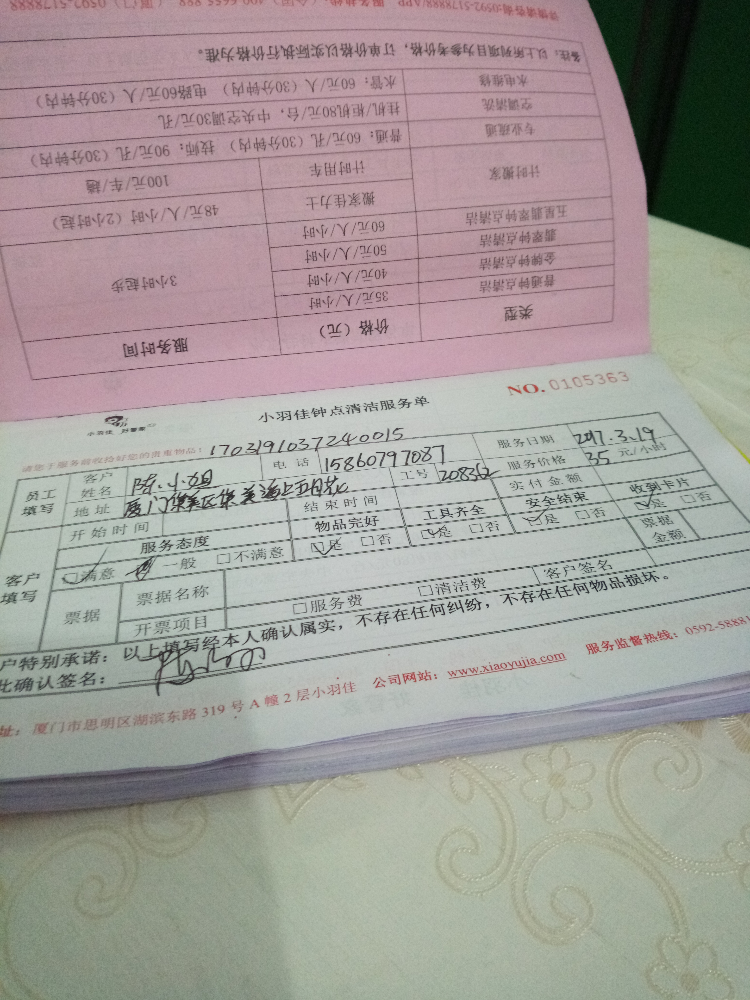 详情请咨询:0592-5178888/APP
服务热线:(全国)400-6655-888 (厦门)0592-5178888
类型 价格(元) 服务时间
普通钟点清洁 35元/人/小时 3小时起步
金牌钟点清洁 40元/人/小时
翡翠钟点清洁 50元/人/小时
五星翡翠钟点清洁 60元/人/小时
计时搬家 搬家佳力士 48元/人/小时(2小时起)
计时用车 100元/车/趟
专业疏通 普通:60元/孔(30分钟内) 技师:90元/孔(30分钟内)
空调清洗 挂机/柜机80元/台,中央空调30元/孔
水电维修 水管:60元/人(30分钟内) 电路60元/人(30分钟内)
备注:以上所列项目为参考价格,订单价格以实际执行价格为准。
小羽佳 好管家
小羽佳钟点清洁服务单
NO.0105363
请您于服务前收拾好您的贵重物品!
1703191037240015
员工填写 客户姓名 陈小姐 电话 15860797087 服务日期 2017.3.19
地址 厦门集美区集美海上五月花 工号 208362 服务价格 35 元/小时
开始时间 结束时间 实付金额
服务态度 物品完好 工具齐全 安全结束 收到卡片
客户填写 ☑满意 一般 □不满意 ☑是 □否 ☑是 □否 ☑是 □否 ☑是 □否
票据 票据名称 票据金额
开票项目 □服务费 □清洁费 客户签名
户特别承诺:以上填写经本人确认属实,不存在任何纠纷,不存在任何物品损坏。
此确认签名:
址:厦门市思明区湖滨东路319号A幢2层小羽佳 公司网站:www.xiaoyujia.com 服务监督热线:0592-58881